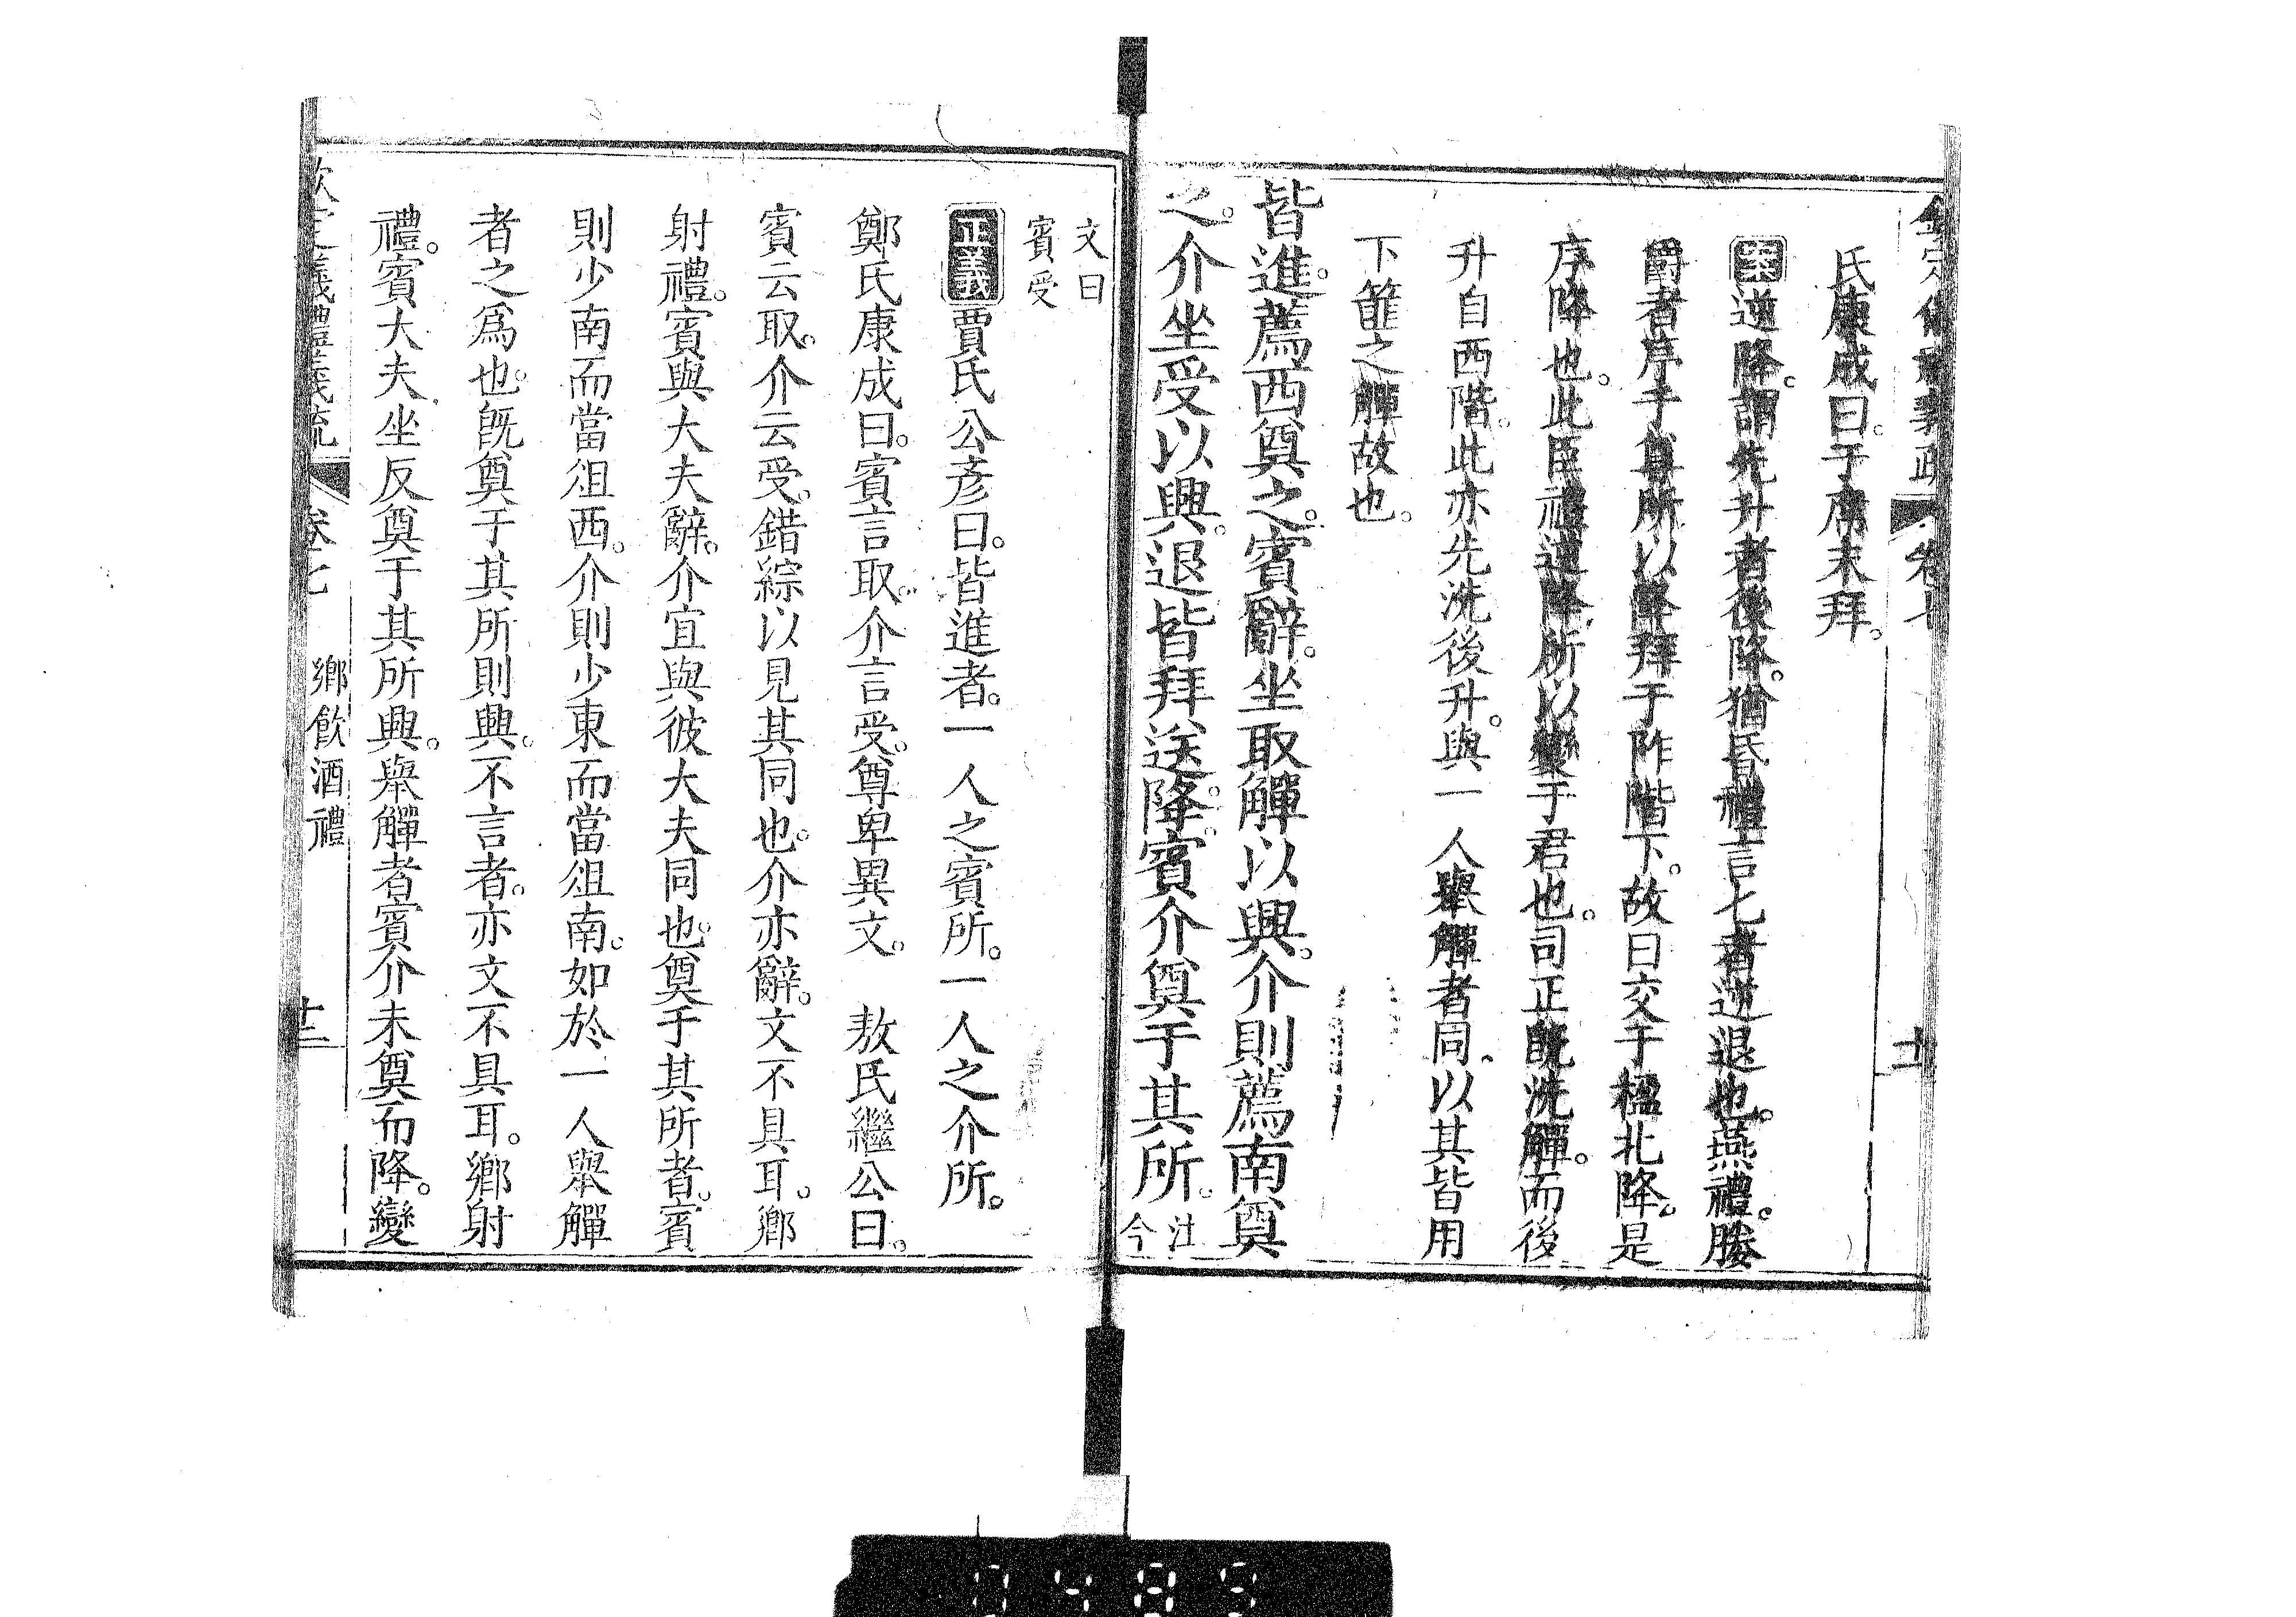 欽定儀禮義疏 卷七 十一
氏康成曰。于席末拜。
案逆降。謂先升者後降。猶昏禮言匕者逆退也。燕禮。媵
爵者序于尊所以降拜于阼階下。故曰交于楹北降。是
序降也。此臣禮逆降。所以變于君也。司正既洗觶。而後
升自西階。此亦先洗後升。與一人舉觶者同。以其皆用
下篚之觶故也。
皆進。薦西奠之。賓辭。坐取觶以興。介則薦南奠
之。介坐受以興。退皆拜送。降。賓介奠于其所。注今
文曰賓受
正義賈氏公彥曰。皆進者。一人之賓所。一人之介所。
鄭氏康成曰。賓言取。介言受。尊卑異文。 敖氏繼公曰。
賓云取。介云受。錯綜以見其同也。介亦辭。文不具耳。鄉
射禮。賓與大夫辭。介宜與彼大夫同也。奠于其所者。賓
則少南而當俎西。介則少東而當俎南。如於一人舉觶
者之為也。既奠于其所則興。不言者。亦文不具耳。鄉射
禮。賓大夫坐反奠于其所興。舉觶者賓介未奠而降。變
欽定儀禮義疏 卷七 鄉飲酒禮 十二